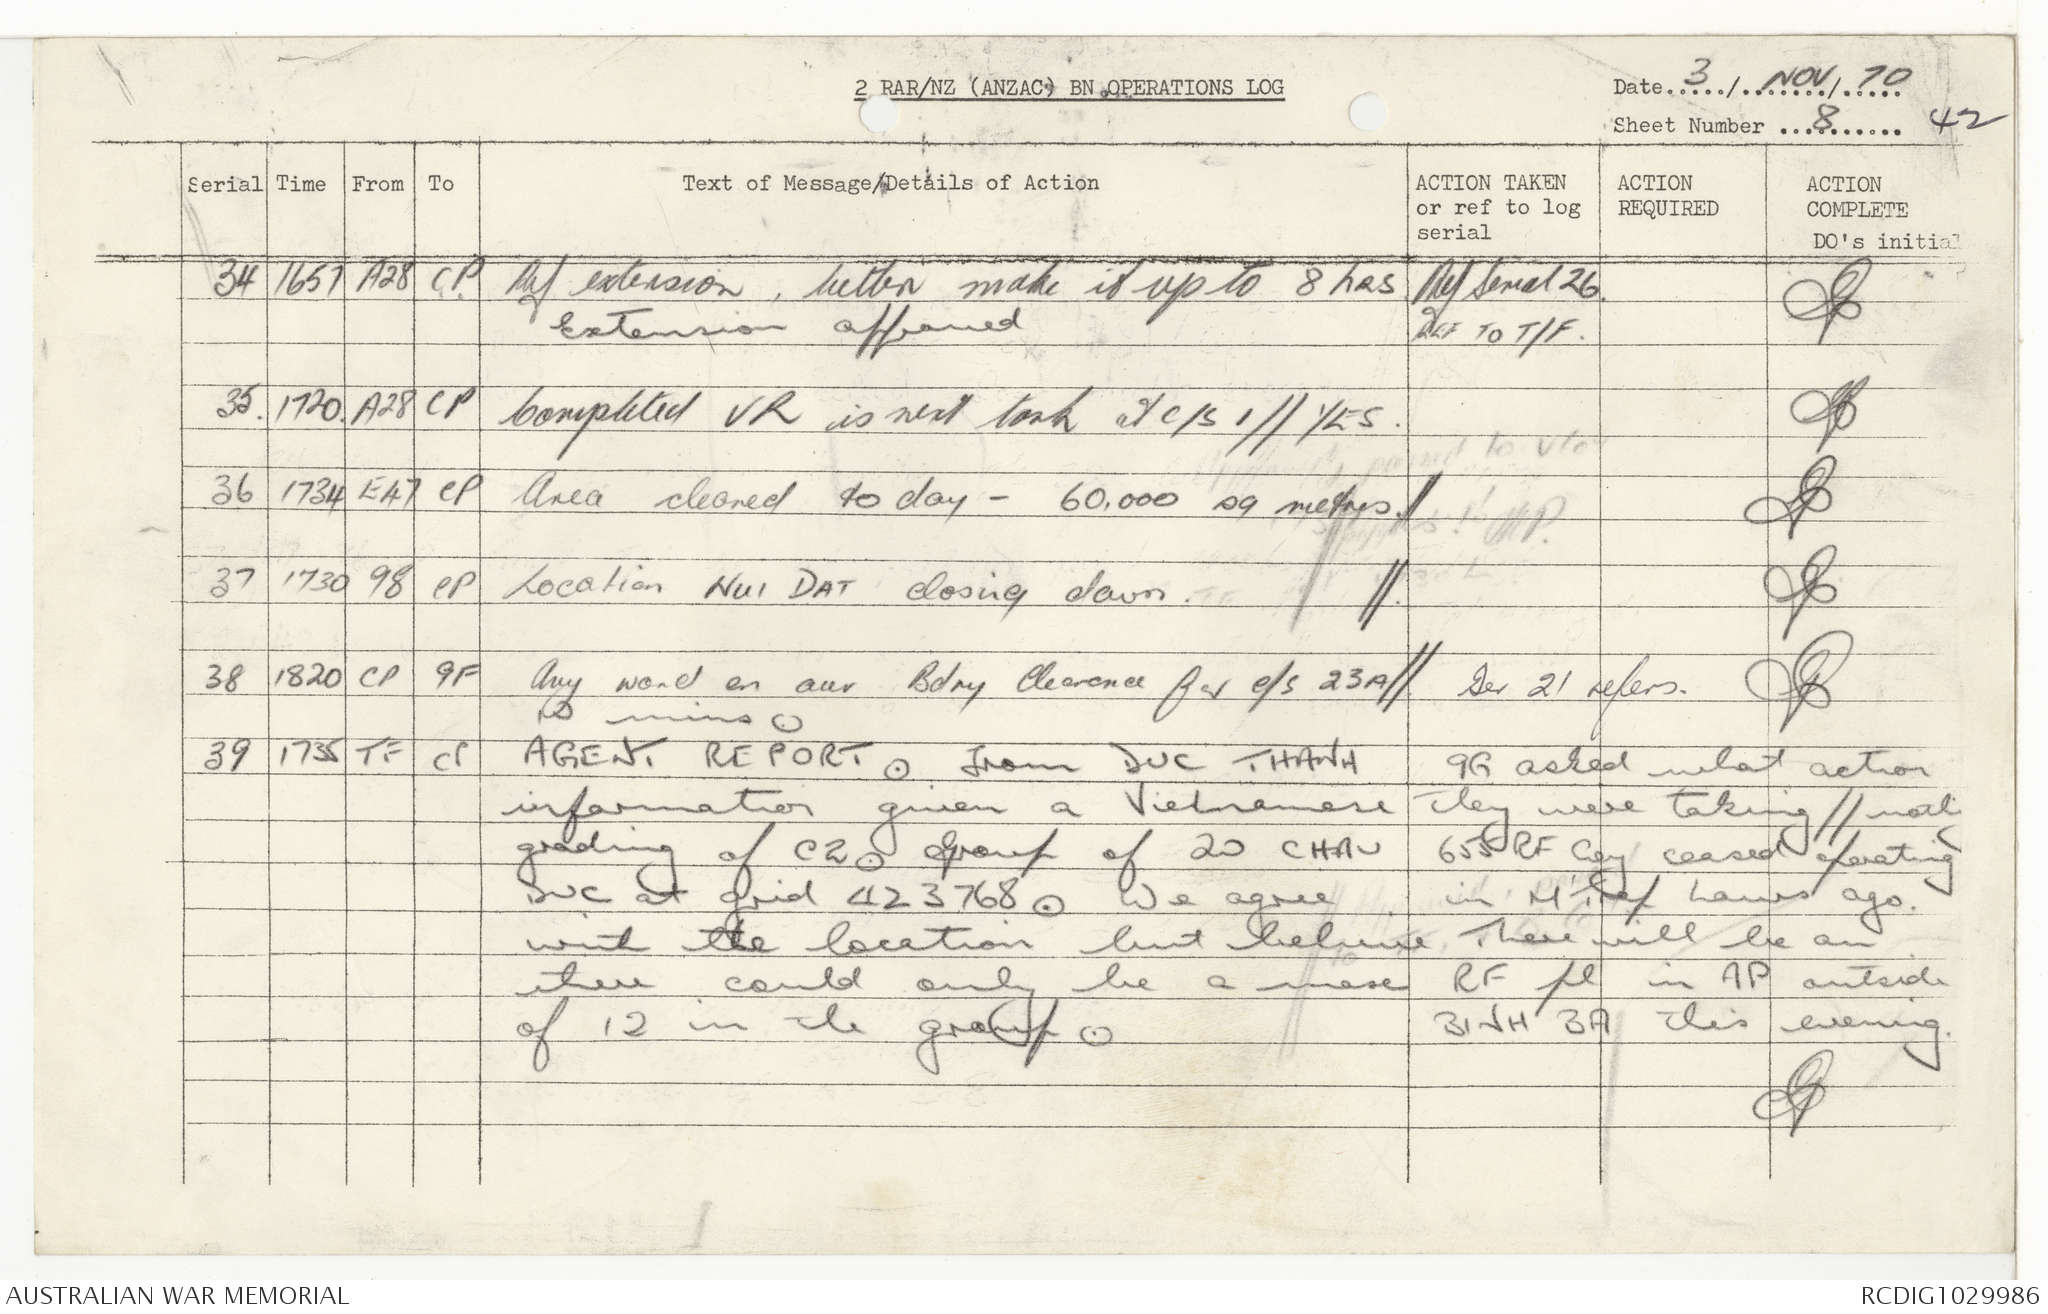 2 RAR/NZ (ANZAC) BN OPERATIONS LOG
Date 3 / NOV / 70
Sheet Number 8 42
Serial Time From To Text of Message/Details of Action ACTION TAKEN or ref to log serial ACTION REQUIRED ACTION COMPLETE DO's initial
34 1657 A28 CP Ref extension, better make it up to 8 hrs Ref Serial 26.
Extension approved REF TO T/F.
35. 1720. A28 CP Completed VR is next task at C/S 1 // YES.
36 1734 E47 CP Area cleared to day - 60,000 sq metres. //
37 1730 98 CP Location NUI DAT closing down. //.
38 1820 CP 9F Any word on our Bdry Clearance for c/s 23A //. Ser 21 refers.
10 mins.
39 1735 TF CP AGENT REPORT. From DUC THANH 9G asked what action
information given a Vietnamese They were taking //
grading of C2. Group of 20 CHAU 655 RF Coy ceased operating
DUC at grid 423768. We agree in hours ago.
with the location but believe There will be an
there could only be a max RF pl in AP outside
of 12 in the group. BINH BA this evening.
AUSTRALIAN WAR MEMORIAL RCDIG1029986